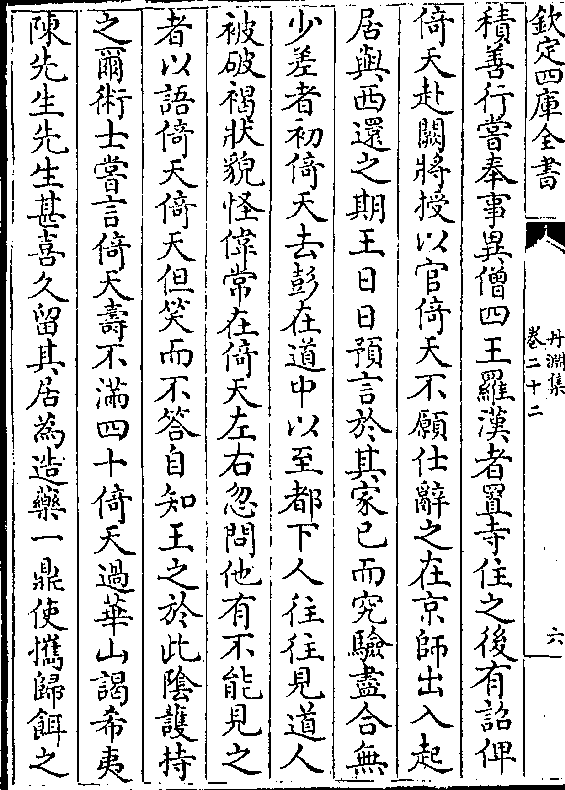 欽定四庫全書
丹淵集
卷二十二
六
積善行嘗奉事異僧四王羅漢者置寺住之後有詔俾
倚天赴闕將授以官倚天不願仕辭之在京師出入起
居與西還之期王日日預言於其家已而究驗盡合無
少差者初倚天去彭在道中以至都下人往往見道人
被破褐狀貌怪偉常在倚天左右忽問他有不能見之
者以語倚天倚天但笑而不答自知王之於此陰護持
之爾術士嘗言倚天壽不滿四十倚天過華山謁希夷
陳先生先生甚喜久留其居為造藥一鼎使攜歸餌之